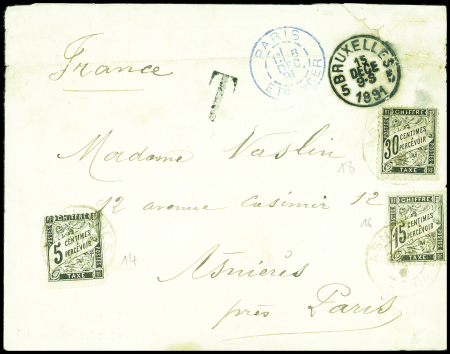 France
T
PARIS
ETRANGER
BRUXELLES
15
DECE
9-S
1891
5 5
Madame Vaslin
12 avenue Casimir 12
Asnières
près Paris
CHIFFRE
30
CENTIMES
A
PERCEVOIR
TAXE
18
CHIFFRE
15
CENTIMES
A
PERCEVOIR
TAXE
16
CHIFFRE
5
CENTIMES
A
PERCEVOIR
TAXE
14